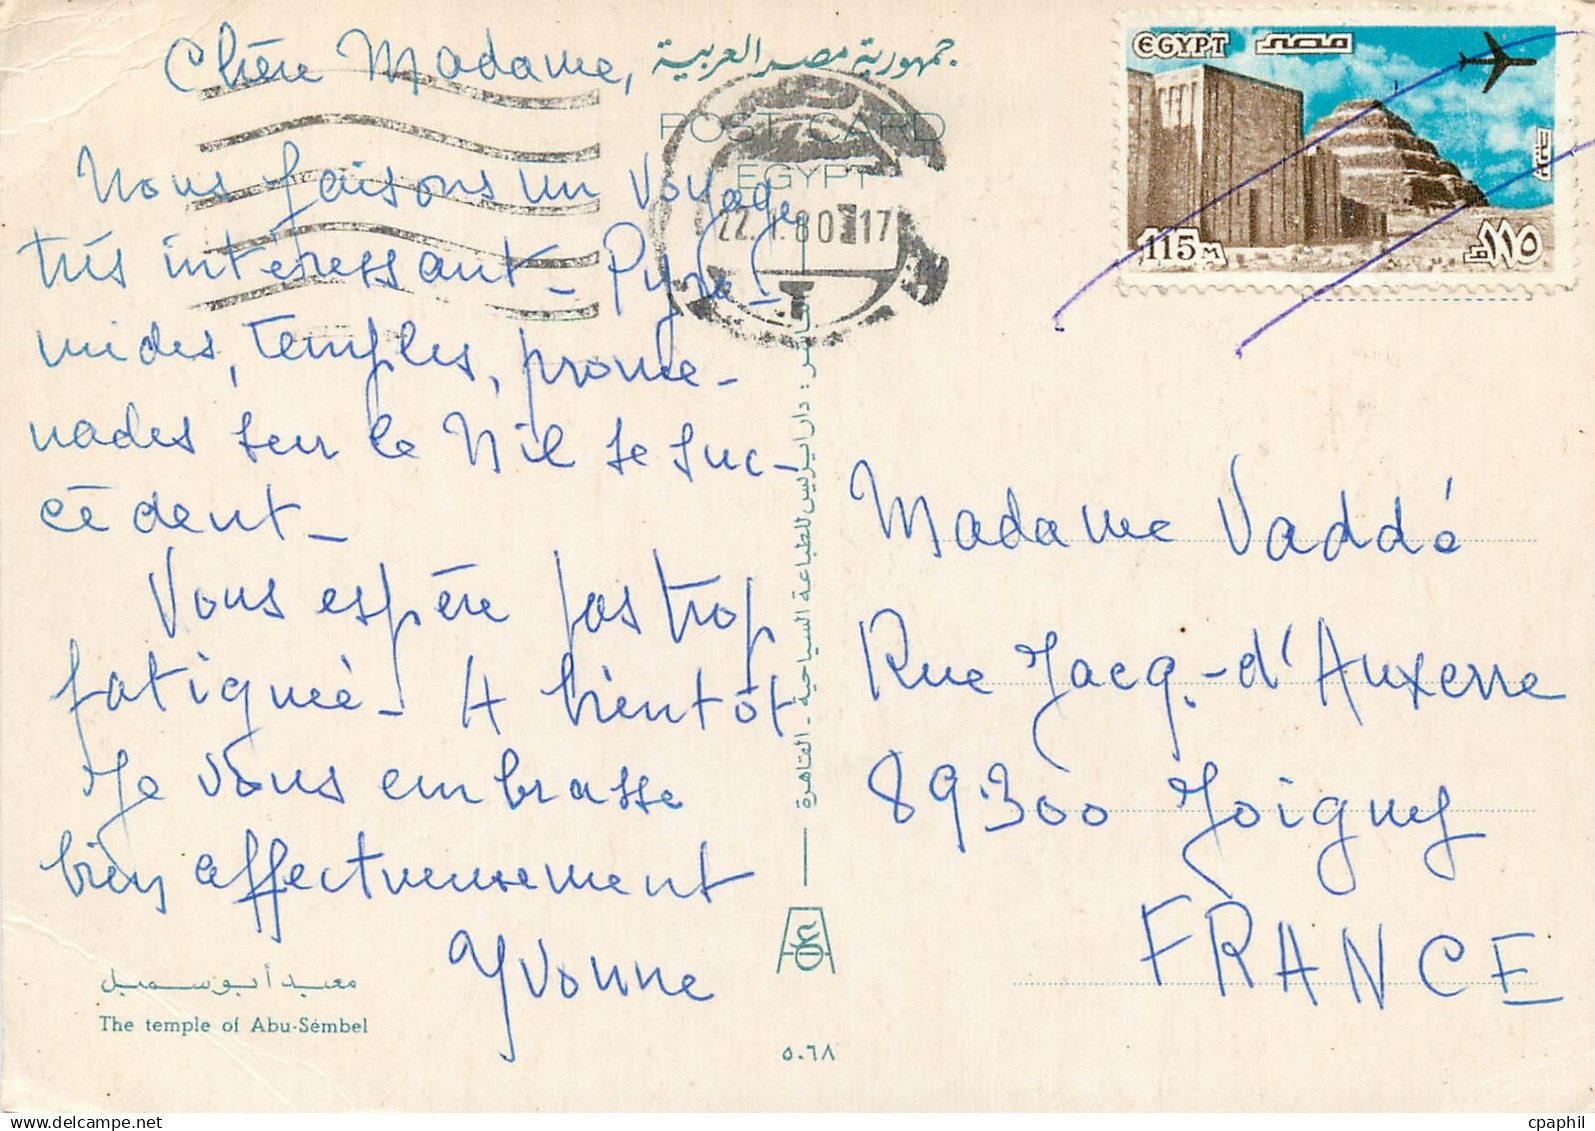 Chère Madame,
Nous faisons un voyage
très intéressant - Pyra-
mides, temples, prome-
nades sur le Nil se suc-
cèdent -
Vous espère pas trop
fatiguée - A bientôt
Je vous embrasse
bien affectueusement
Yvonne
معبد أبو سمبل
The temple of Abu-Sémbel
جمهورية مصر العربية
POST CARD
EGYPT
22.1.80 17
الناشر : دار ايزيس للطباعة السياحية - القاهرة
٥٠٦٨
EGYPT مصر
115M
١١٥
Madame Vaddé
Rue Jacq.-d'Auxerre
89.300 Joigny
FRANCE
cpaphil